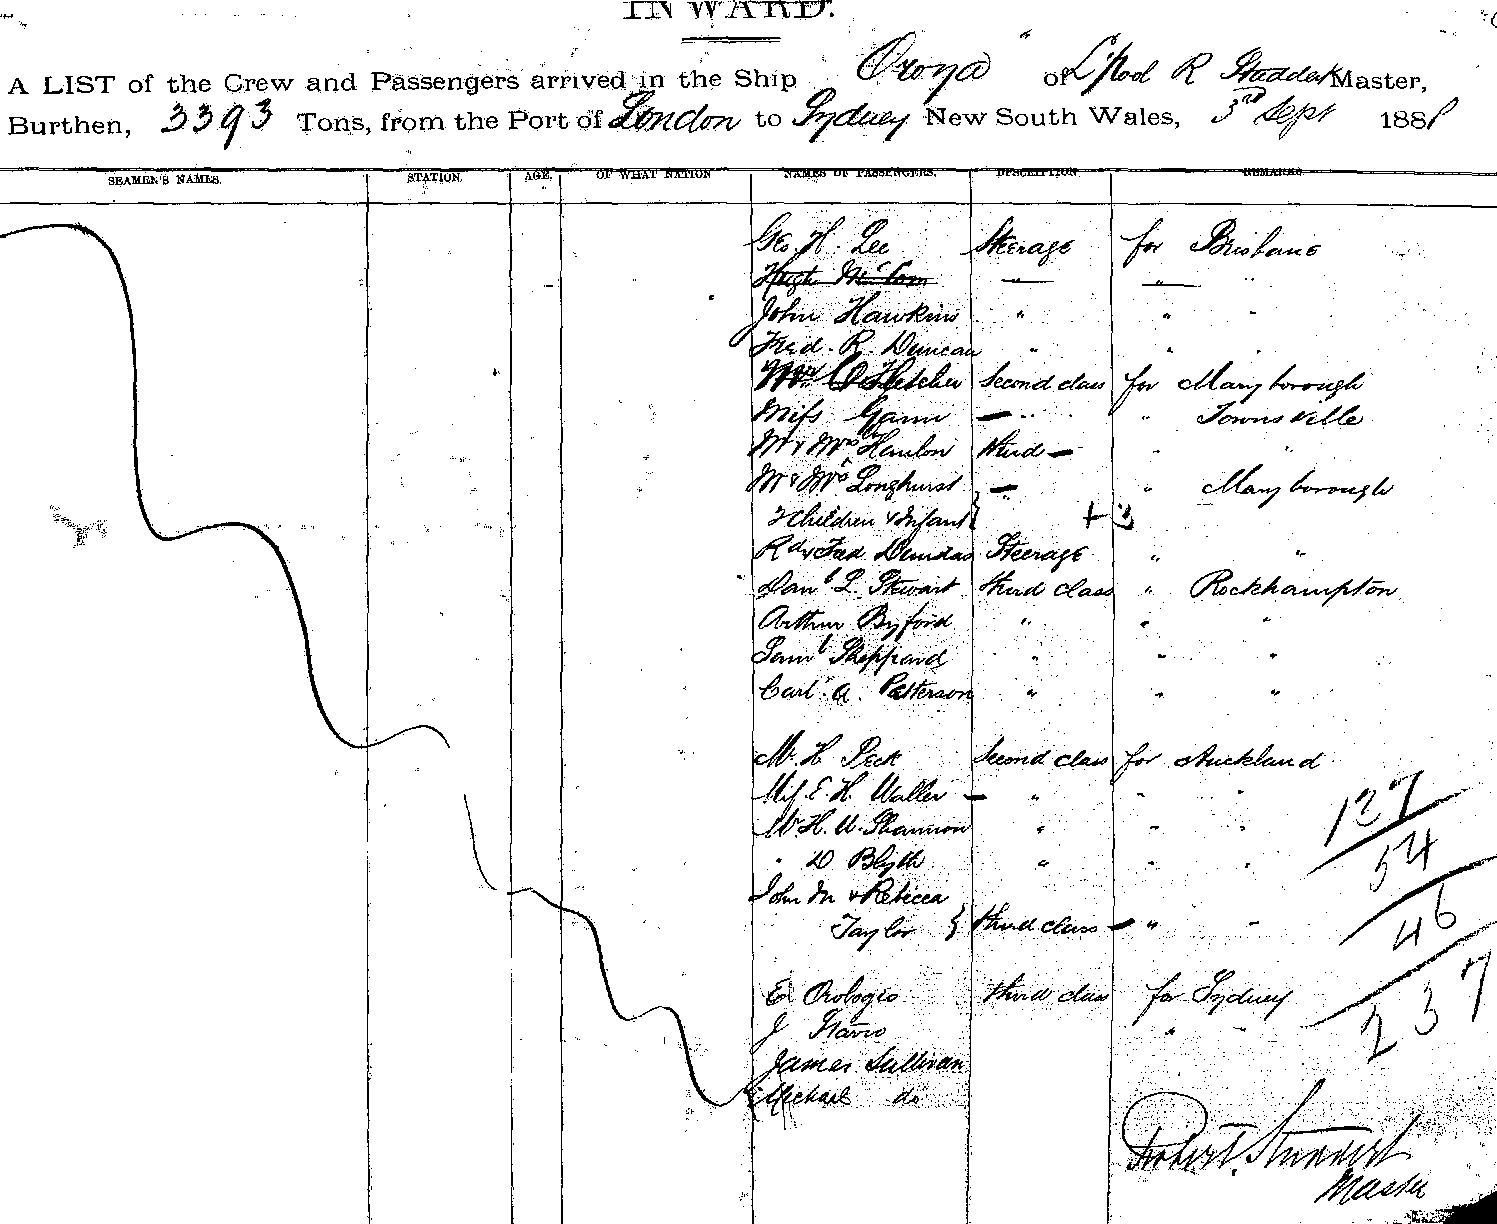 INWARD.
A LIST of the Crew and Passengers arrived in the Ship "Oroya" of L'pool R Master,
Burthen, 3393 Tons, from the Port of London to Sydney New South Wales, 3rd Sept 1888
SEAMEN'S NAMES. STATION. AGE. OF WHAT NATION NAMES OF PASSENGERS. DESCRIPTION REMARKS
Geo H. Lee Steerage for Brisbane
Hugh " "
John Hawkins " " "
Fred. R. Duncan " " "
Fletcher Second class for Maryborough
Miss Gann — " " Townsville
Mr & Mrs Hanlon third — " "
Mr & Mrs Longhurst — " Maryborough
Children & Infant } + 3
Rd & Fred Dundas Steerage " "
Danl L. Stewart third class " Rockhampton
Arthur Byford " " "
Saml Sheppard " " "
Carl. A. Patterson " " "
Mr H Peck Second class for Auckland
Miss E. H. Waller — " " "
Mr H. W. Shannon " " "
" D Blyth " " "
John M & Rebecca
Taylor } third class — " "
E Orologio third class for Sydney
J " "
James Sullivan
Michael do
127
54
46
237
Robert
Master